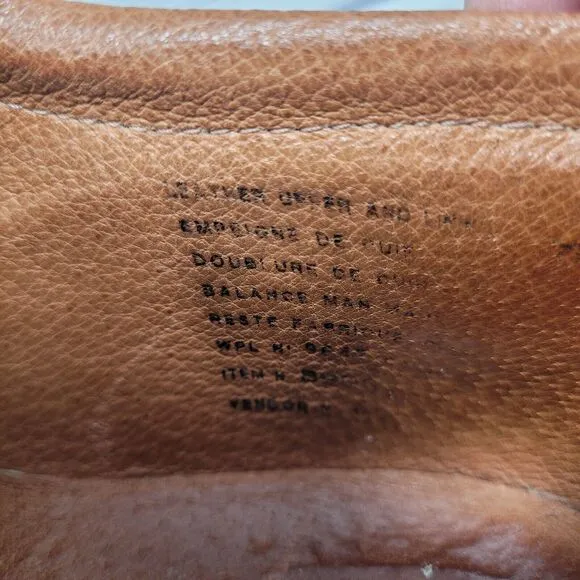 LEATHER UPPER AND LINI
EMPEIGNE DE CUIR
DOUBLURE DE CUIR
BALANCE MAN MA
RESTE FABRIQUE
WPL N:
ITEM N
VENDOR